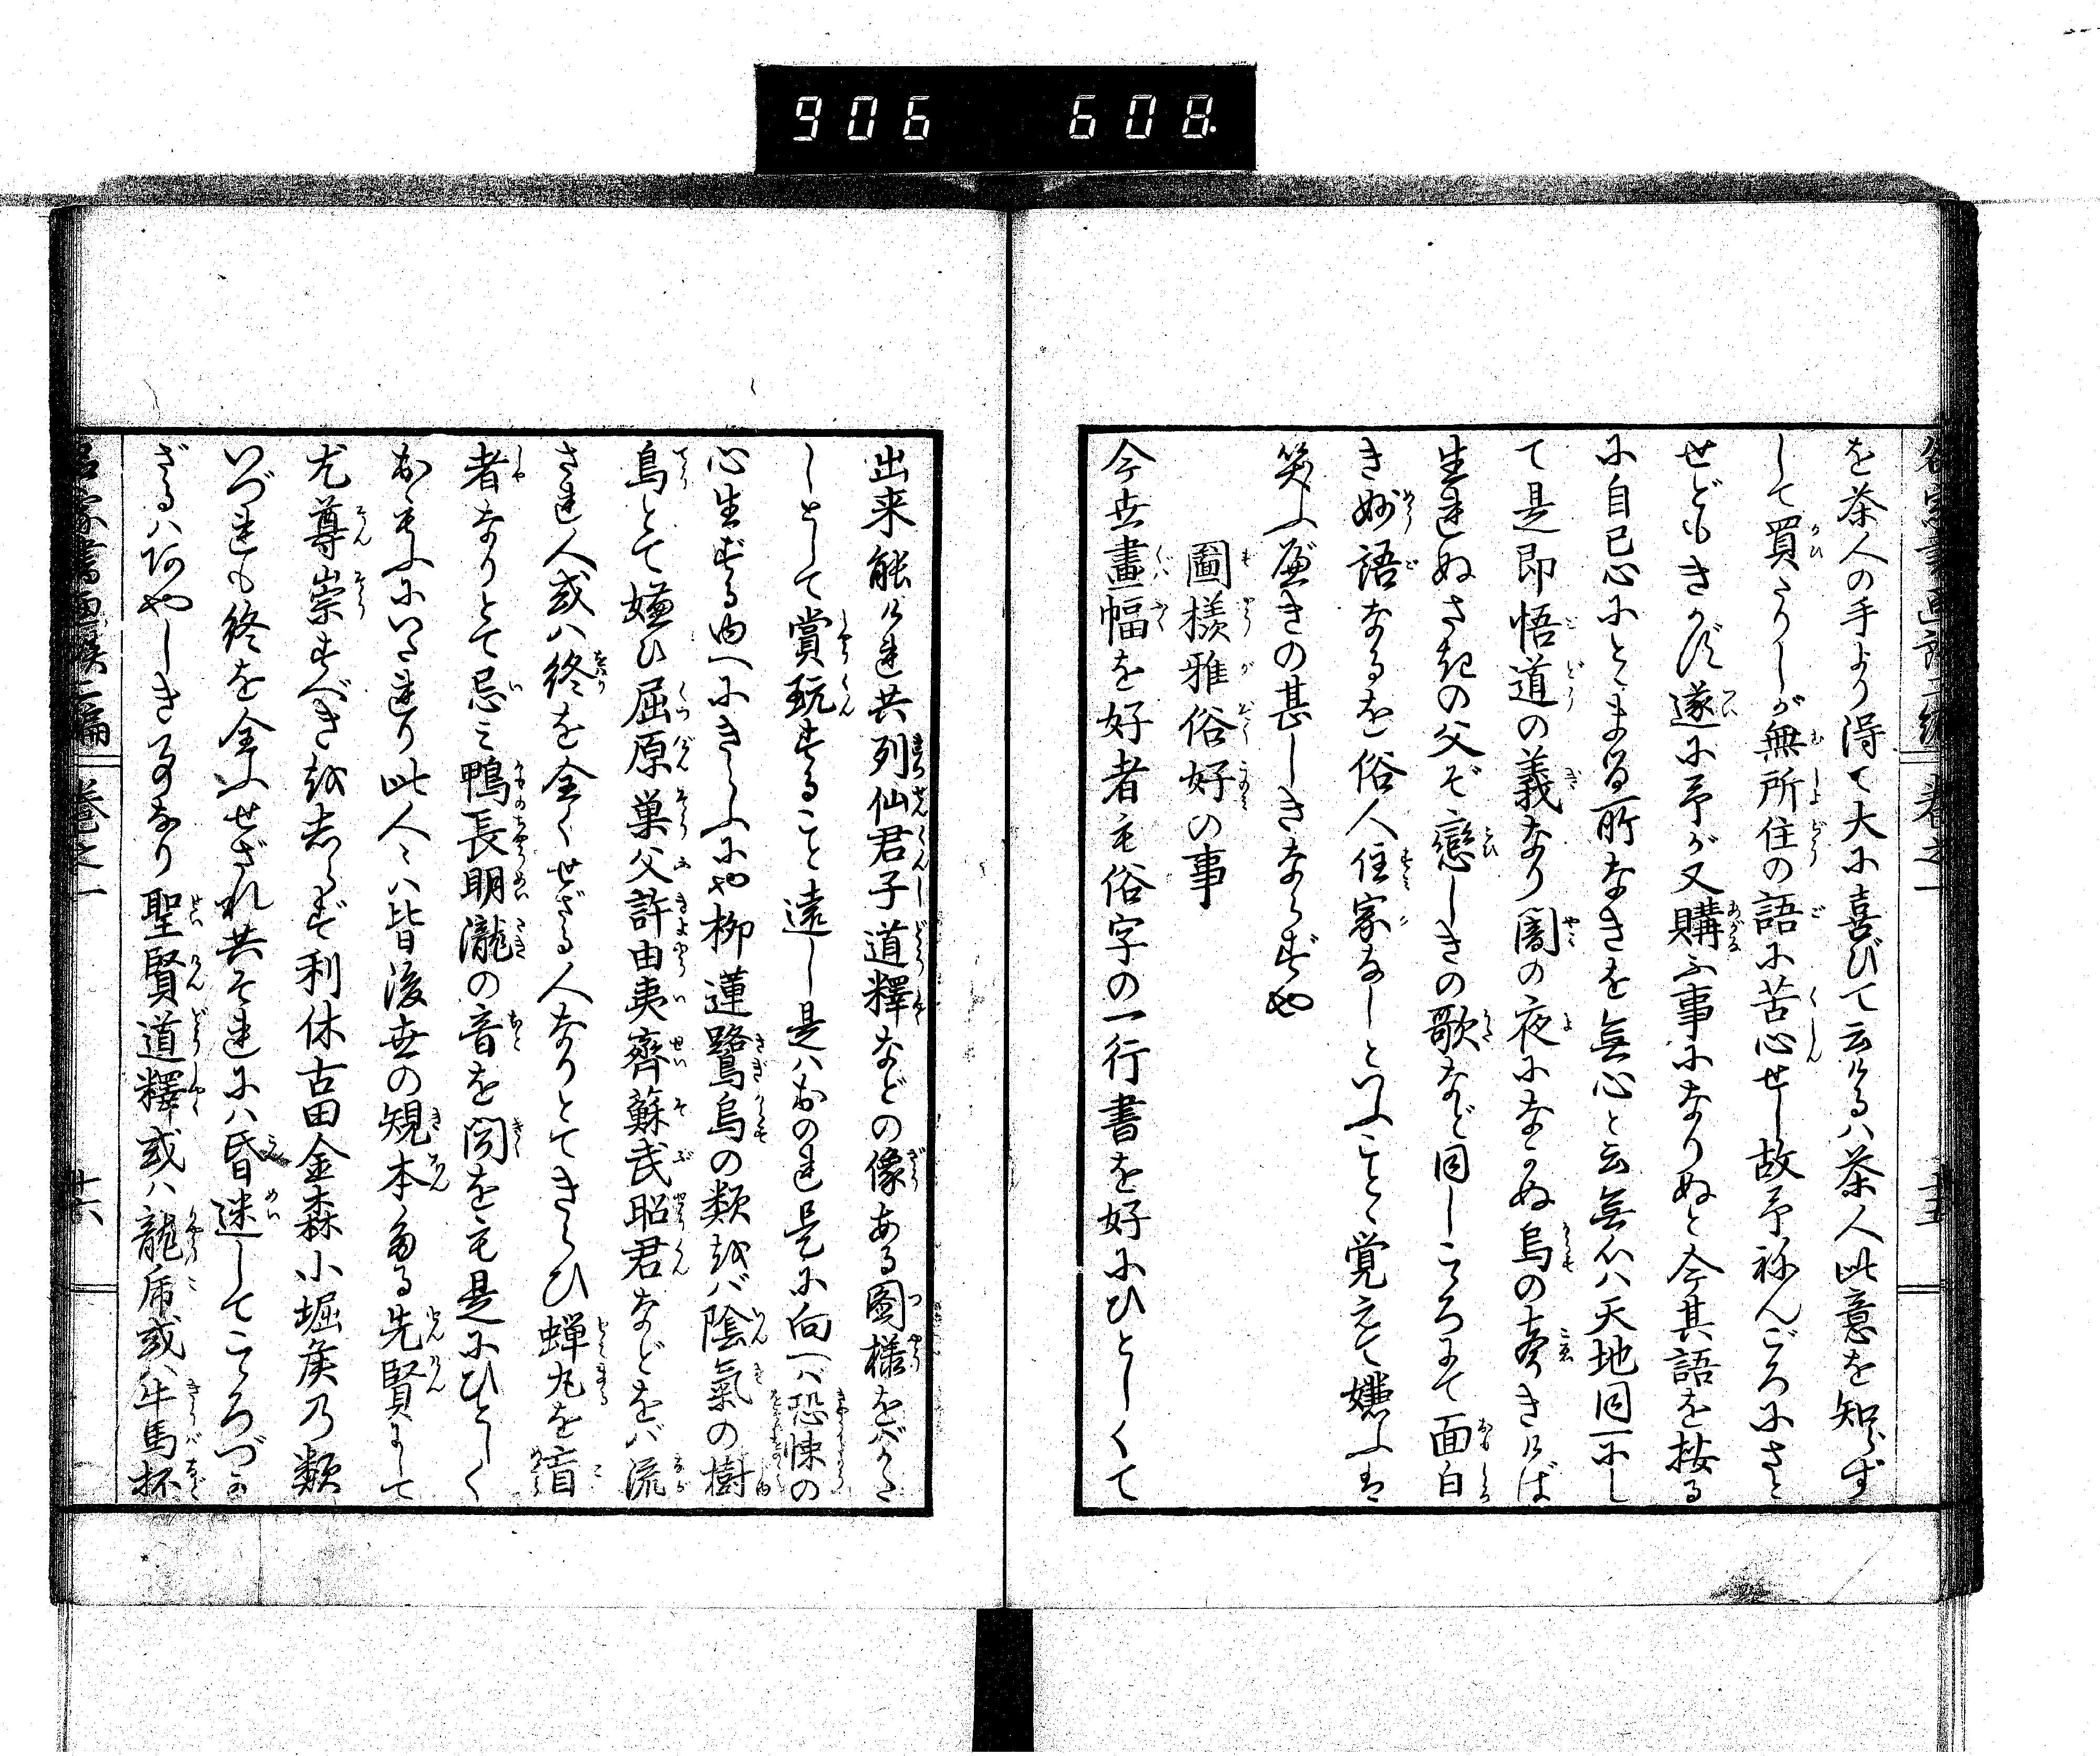 906 608
名家書画談二編 巻之一 廿五
を茶人の手より得て大に喜びて云けるハ茶人此意を知らず
して買さりしが無所住の語に苦心せし故予ねんごろにさと
せどもきかず遂に予が又購ふ事になりぬと今其語を按る
に自己心にとまる所なきを無心と云無心ハ天地同一にし
て是即悟道の義なり闇の夜になかぬ烏の声きけば
生れぬさきの父ぞ戀しきの歌など同しこゝろにて面白
き妙語なるを俗人住家なしといふことゝ覚えて嫌ふは
笑ふ応きの甚しきならずや
圖様雅俗好の事
今世畫幅を好者も俗字の一行書を好にひとしくて
出来能けれ共列仙君子道釋などの像ある圖様をばかた
しとして賞玩すること遠し是ハおのれ是に向へバ恐悚の
心生ずる由へにきらふにや柳蓮鷺烏の類をバ陰氣の樹
鳥とて嫌ひ屈原巣父許由夷齊蘇武昭君などをバ流
され人或ハ終を全くせざる人なりとてきらひ蝉丸を盲
者なりとて忌ミ鴨長明瀧の音を聞をも是にひとしく
おもふにいたれり此人々ハ皆後世の規本たる先賢にして
尤尊崇すべきをしらず利休古田金森小堀侯乃類
いづれも終を全ふせざれ共それにハ昏迷してこゝろづか
ざるハあやしき事なり聖賢道釋或ハ龍乕或ハ牛馬杯
名家書画談二編 巻之一 廿六